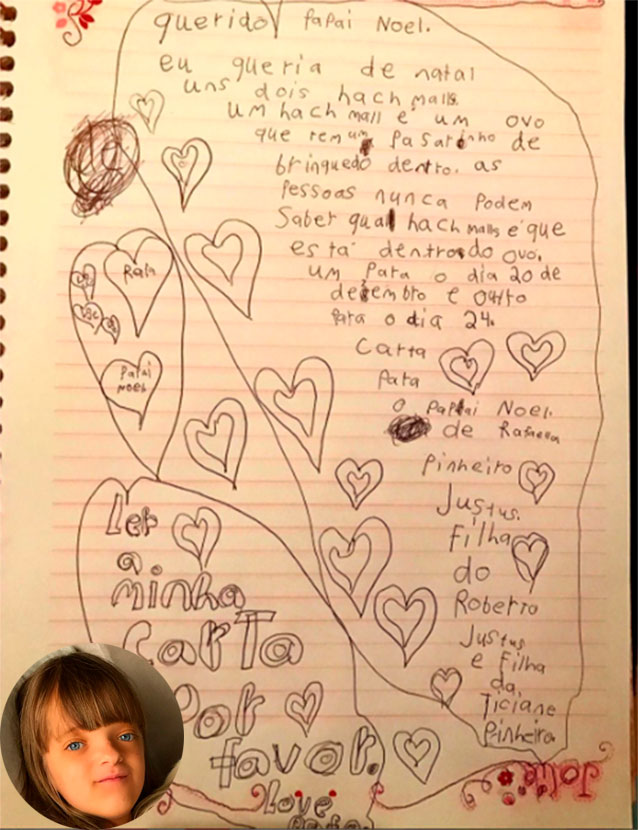 querido papai Noel.
eu queria de natal
uns dois hach malls.
um hach mall é um ovo
que tem um pasarinho de
brinquedo dentro. as
pessoas nunca podem
saber qual hach malls é que
está dentro do ovo.
um para o dia 20 de
dezembro e outro
para o dia 24.
carta
para
o papai Noel.
de Rafaella
Pinheiro
Justus.
Filha
do
Roberto
Justus
e Filha
da
Ticiane
Pinheiro
Rafa
Papai
Noel
Ler
a
minha
carta
por
favor.
Love
Jolie